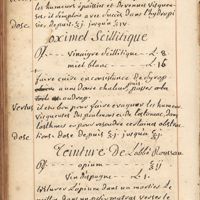 les humeurs épaissies et devenues visqueu-
ses il s'emploie avec succès dans l'hydropi
sie, depuis ʒj jusqu'a ʒiv.
Dose
oximel Scillitique
♃. — Vinaigre Scillitique — ℔. 8
miel blanc — ℔. 16
faire cuire en consistance de syrop
dans une douce chaleur
Vertus il est bon pour faire évacuer les humeurs
visqueuses des poulmons et de l'estomac, dans
l'asthme et pour resoudre certaines obstruc
Dose tions. Dose depuis ʒj jusqu'a ʒj.
Teinture De L'abbé Rousseau
♃. — opium — ℥ij
Vin d'Espagne — ℔ 1.
l'opium dans un mortier de